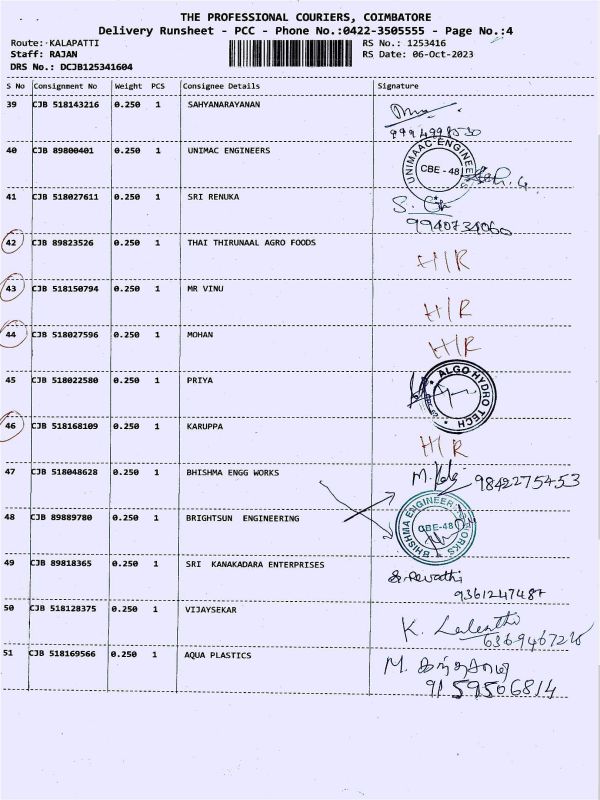 THE PROFESSIONAL COURIERS, COIMBATORE
Delivery Runsheet - PCC - Phone No.:0422-3505555 - Page No.:4
Route: KALAPATTI RS No.: 1253416
Staff: RAJAN RS Date: 06-Oct-2023
DRS No.: DCJB125341604
S No Consignment No Weight PCS Consignee Details Signature
39 CJB 518143216 0.250 1 SAHYANARAYANAN
9994998530
40 CJB 89800401 0.250 1 UNIMAC ENGINEERS UNIMAAC ENGINEERS CBE - 48
41 CJB 518027611 0.250 1 SRI RENUKA
9940734060
42 CJB 89823526 0.250 1 THAI THIRUNAAL AGRO FOODS H/R
43 CJB 518150794 0.250 1 MR VINU H/R
44 CJB 518027596 0.250 1 MOHAN H/R
45 CJB 518022580 0.250 1 PRIYA ALGO HYDRO TECH
46 CJB 518168109 0.250 1 KARUPPA H/R
47 CJB 518048628 0.250 1 BHISHMA ENGG WORKS 9842275453
48 CJB 89889780 0.250 1 BRIGHTSUN ENGINEERING BHISHMA ENGINEERING WORKS CBE-48
49 CJB 89818365 0.250 1 SRI KANAKADARA ENTERPRISES
9361247487
50 CJB 518128375 0.250 1 VIJAYSEKAR K. Lalenthi
51 CJB 518169566 0.250 1 AQUA PLASTICS M.
9159506814